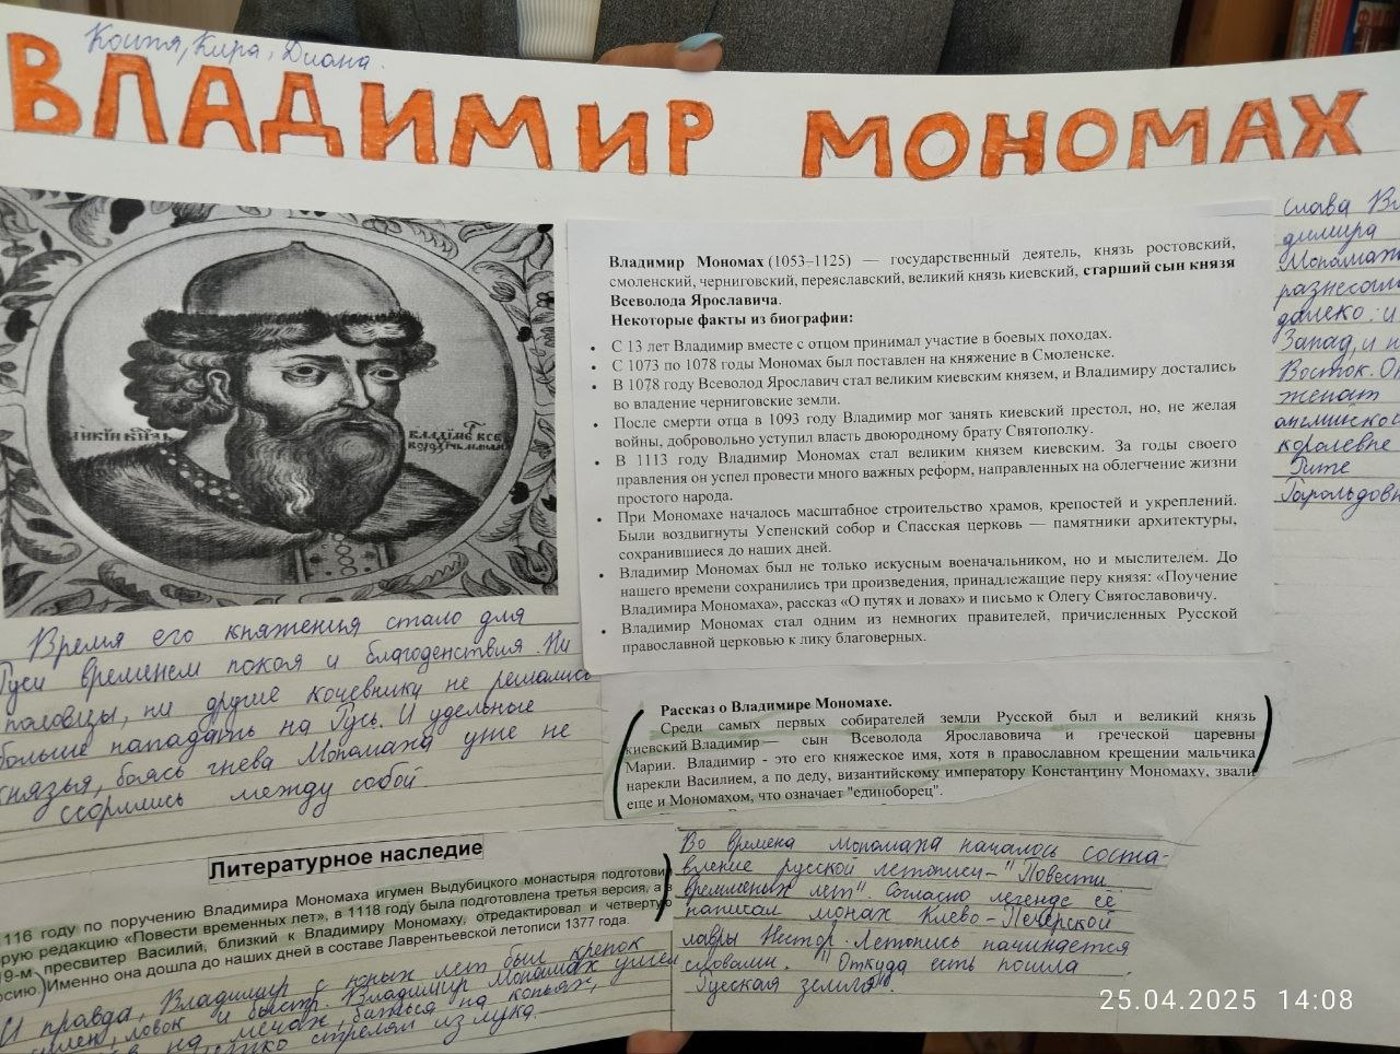 Костя, Кира, Диана.
ВЛАДИМИР МОНОМАХ
Владимир Мономах (1053–1125) — государственный деятель, князь ростовский,
смоленский, черниговский, переяславский, великий князь киевский, старший сын князя
Всеволода Ярославича.
Некоторые факты из биографии:
• С 13 лет Владимир вместе с отцом принимал участие в боевых походах.
• С 1073 по 1078 годы Мономах был поставлен на княжение в Смоленске.
• В 1078 году Всеволод Ярославич стал великим киевским князем, и Владимиру достались
во владение черниговские земли.
• После смерти отца в 1093 году Владимир мог занять киевский престол, но, не желая
войны, добровольно уступил власть двоюродному брату Святополку.
• В 1113 году Владимир Мономах стал великим князем киевским. За годы своего
правления он успел провести много важных реформ, направленных на облегчение жизни
простого народа.
• При Мономахе началось масштабное строительство храмов, крепостей и укреплений.
Были воздвигнуты Успенский собор и Спасская церковь — памятники архитектуры,
сохранившиеся до наших дней.
• Владимир Мономах был не только искусным военачальником, но и мыслителем. До
нашего времени сохранились три произведения, принадлежащие перу князя: «Поучение
Владимира Мономаха», рассказ «О путях и ловах» и письмо к Олегу Святославовичу.
• Владимир Мономах стал одним из немногих правителей, причисленных Русской
православной церковью к лику благоверных.
слава Вл
димира
Мономаха
разнеслась
далеко: и
Запад, и н
Восток. Он
женат
английской
королевне
Гите
Гарольдовн
Время его княжения стало для
Руси временем покоя и благоденствия. Ни
половцы, ни другие кочевники не решались
больше нападать на Русь. И удельные
князья, боясь гнева Мономаха уже не
ссорились между собой.
Рассказ о Владимире Мономахе.
Среди самых первых собирателей земли Русской был и великий князь
киевский Владимир — сын Всеволода Ярославовича и греческой царевны
Марии. Владимир - это его княжеское имя, хотя в православном крещении мальчика
нарекли Василием, а по деду, византийскому императору Константину Мономаху, звали
еще и Мономахом, что означает "единоборец".
Литературное наследие
1116 году по поручению Владимира Мономаха игумен Выдубицкого монастыря подготовил
рую редакцию «Повести временных лет», в 1118 году была подготовлена третья версия, а в
9-м пресвитер Василий, близкий к Владимиру Мономаху, отредактировал и четвертую
рсию. Именно она дошла до наших дней в составе Лаврентьевской летописи 1377 года.
И правда, Владимир с юных лет был крепок
ловок и быстр. Владимир Мономах умел
на мечах, биться на копьях,
стрелял из лука.
Во времена Мономаха началось соста-
вление русской летописи - "Повести
временных лет". Согласно легенде её
написал монах Киево-Печерской
лавры Нестор. Летопись начинается
словами: "Откуда есть пошла
Русская земля".
25.04.2025 14:08